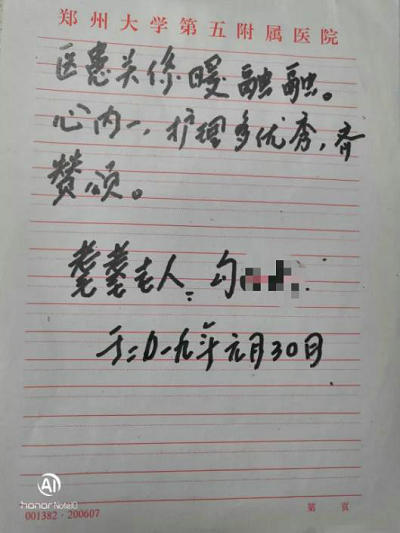 郑州大学第五附属医院
医患关系暖融融。
心内一,护理多优秀,齐
赞颂。
耄耋老人:勾
于二0一九年元月30日
AI
honor Note10
001382·200607
第 页